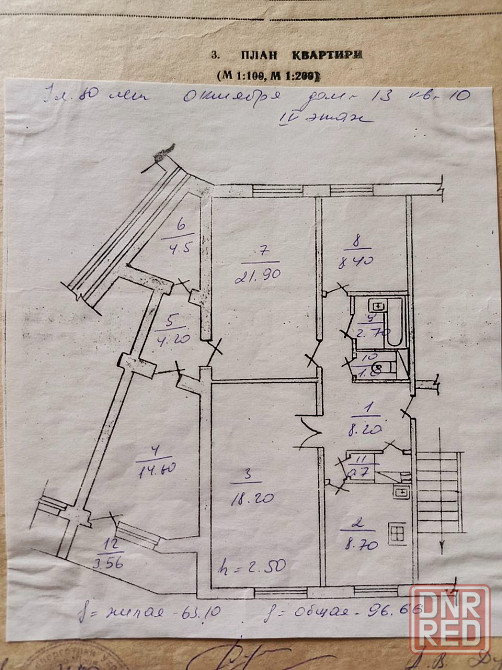 3. ПЛАН КВАРТИРИ
(М 1:100, М 1:200)
Ул. 80 лет октября дом-13 кв-10
IV этаж
6
4.5
7
21.90
8
8.40
5
4.20
9
2.70
10
1
8.20
4
14.60
3
18.20
11
2
8.70
12
3.56
h = 2.50
S = жилая - 63.10 S = общая - 96.66
DNR
RED